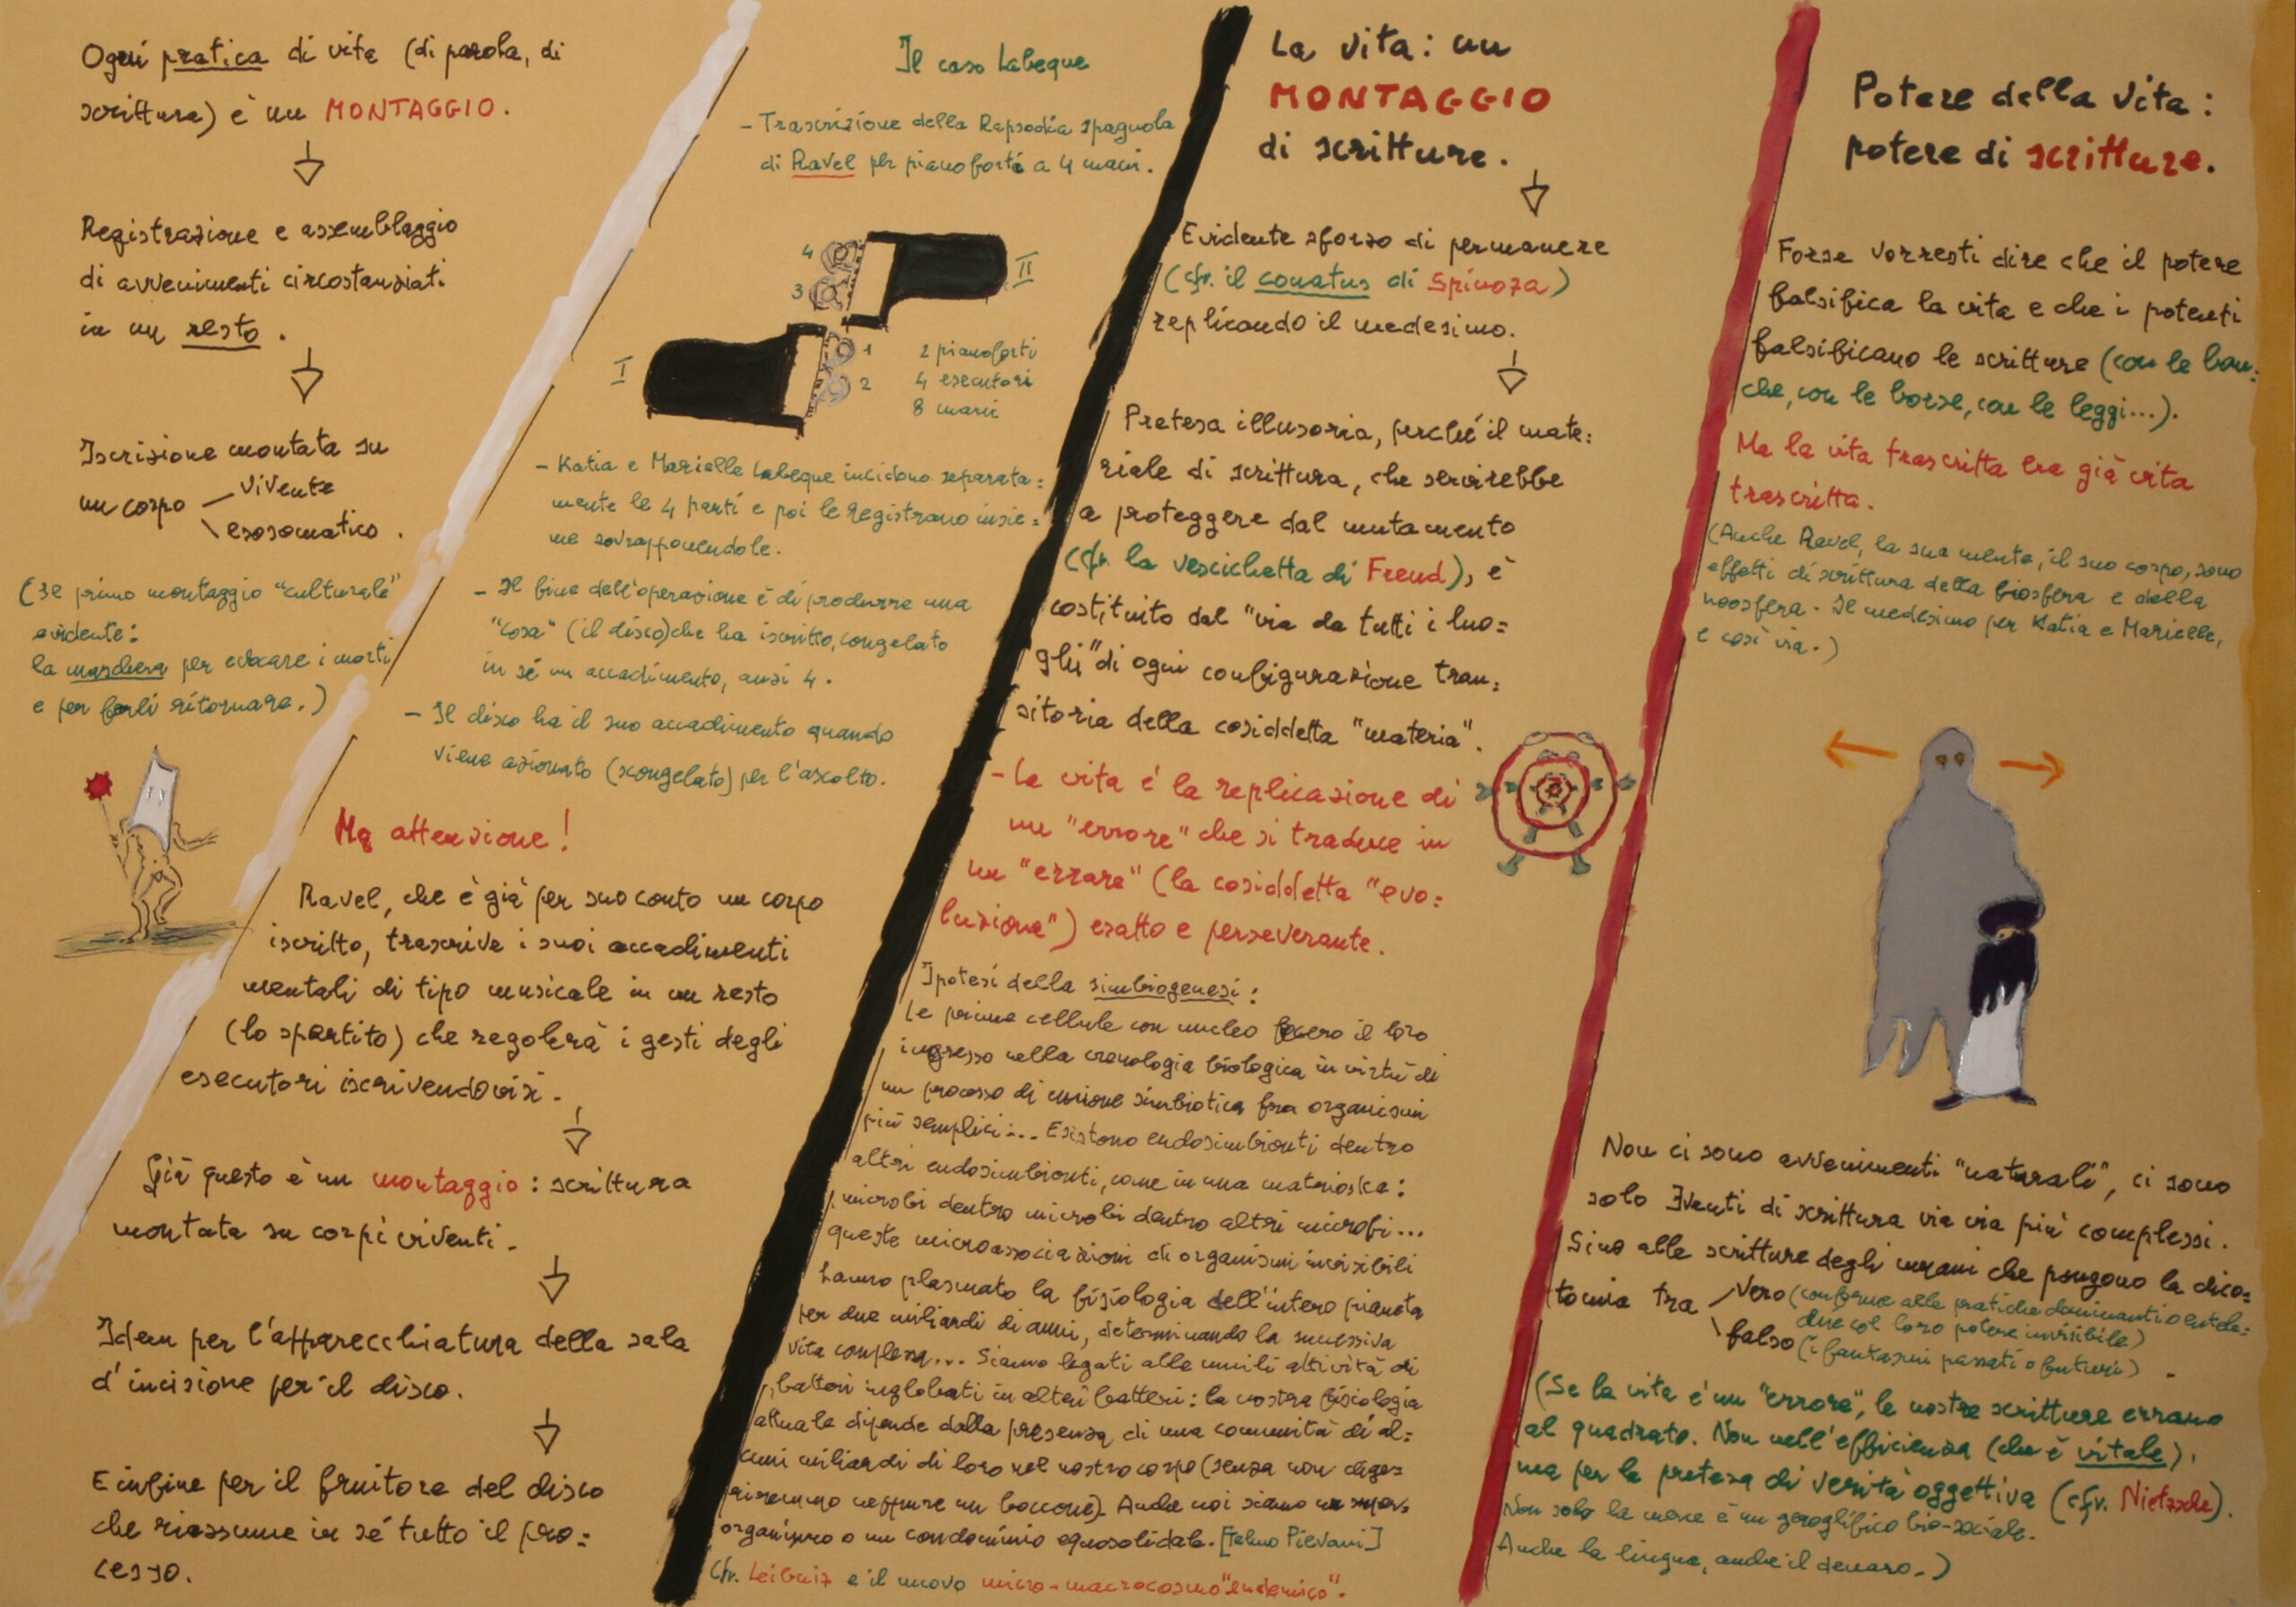 Ogni pratica di vita (di parola, di
scrittura) è un MONTAGGIO.
Registrazione e assemblaggio
di avvenimenti circostanziati
in un resto.
Iscrizione montata su
un corpo
vivente
esosomatico.
(Il primo montaggio "culturale"
evidente:
la maschera per evocare i morti
e per farli ritornare.)
Il caso Labeque
- Trascrizione della Rapsodia spagnola
di Ravel per pianoforte a 4 mani.
4
3
II
I
1
2
2 pianoforti
4 esecutori
8 mani
- Katia e Marielle Labeque incidono separata=
mente le 4 parti e poi le registrano insie=
me sovrapponendole.
- Il fine dell'operazione è di produrre una
"cosa" (il disco) che ha iscritto, congelato
in sé un accadimento, anzi 4.
- Il disco ha il suo accadimento quando
viene azionato (scongelato) per l'ascolto.
Ma attenzione!
Ravel, che è già per suo conto un corpo
iscritto, trascrive i suoi accadimenti
mentali di tipo musicale in un resto
(lo spartito) che regolerà i gesti degli
esecutori iscrivendovisi.
Già questo è un montaggio: scrittura
montata su corpi viventi.
Idem per l'apparecchiatura della sala
d'incisione per il disco.
E infine per il fruitore del disco
che riassume in sé tutto il pro=
cesso.
La vita: un
MONTAGGIO
di scritture.
Evidente sforzo di permanere
(cfr. il conatus di Spinoza)
replicando il medesimo.
Pretesa illusoria, perché il mate=
riale di scrittura, che servirebbe
a proteggere dal mutamento
(cfr. la vescichetta di Freud), è
costituito dal "via da tutti i luo=
ghi" di ogni configurazione tran=
sitoria della cosiddetta "materia".
- La vita è la replicazione di
un "errore" che si traduce in
un "errare" (la cosiddetta "evo=
luzione") esatto e perseverante.
Ipotesi della simbiogenesi:
Le prime cellule con nucleo fecero il loro
ingresso nella cronologia biologica in virtù di
un processo di unione simbiotica fra organismi
più semplici... Esistono endosimbionti dentro
altri endosimbionti, come in una matrioska:
microbi dentro microbi dentro altri microbi...
queste microassociazioni di organismi invisibili
hanno plasmato la fisiologia dell'intero pianeta
per due miliardi di anni, determinando la successiva
vita complessa... Siamo legati alle umili attività di
batteri inglobati in altri batteri: la nostra fisiologia
attuale dipende dalla presenza di una comunità di al=
cuni miliardi di loro nel nostro corpo (senza non dige=
riremmo neppure un boccone). Anche noi siamo un super=
organismo o un condominio equosolidale. [Telmo Pievani]
Cfr. Leibniz e il nuovo micro-macrocosmo "endemico".
Potere della vita:
potere di scritture.
Forse vorresti dire che il potere
falsifica la vita e che i potenti
falsificano le scritture (con le ban=
che, con le borse, con le leggi...).
Ma la vita trascritta era già vita
trascritta.
(Anche Ravel, la sua mente, il suo corpo, sono
effetti di scrittura della biosfera e della
noosfera. Il medesimo per Katia e Marielle,
e così via.)
Non ci sono avvenimenti "naturali", ci sono
solo Eventi di scrittura via via più complessi.
Sino alle scritture degli umani che pongono la dico=
tomia tra
vero (conforme alle pratiche dominanti o
due col loro potere invisibile)
falso (i fantasmi passati o futuri).
(Se la vita è un "errore", le nostre scritture errano
al quadrato. Non nell'efficienza (che è vitale),
ma per la pretesa di verità oggettiva (cfr. Nietzsche).
Non solo la è un geroglifico bio-sociale.
Anche la lingua, anche il denaro.)